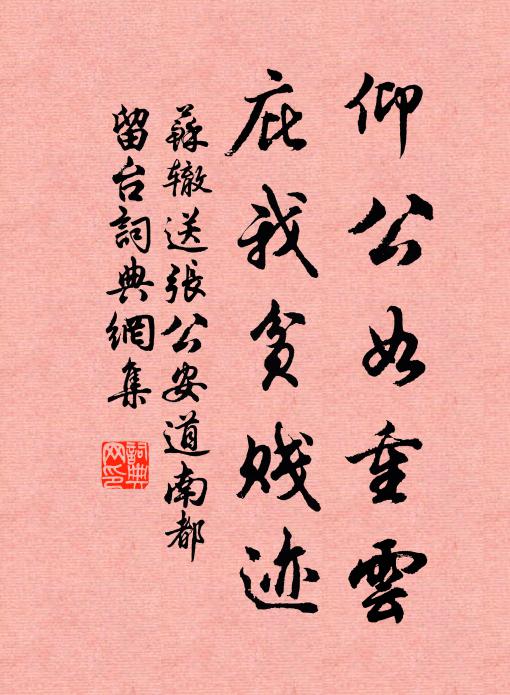 仰公如重雲
庇我貧賤迹
蘇轍送張公安道南都
留台詞典網集
詞典网印